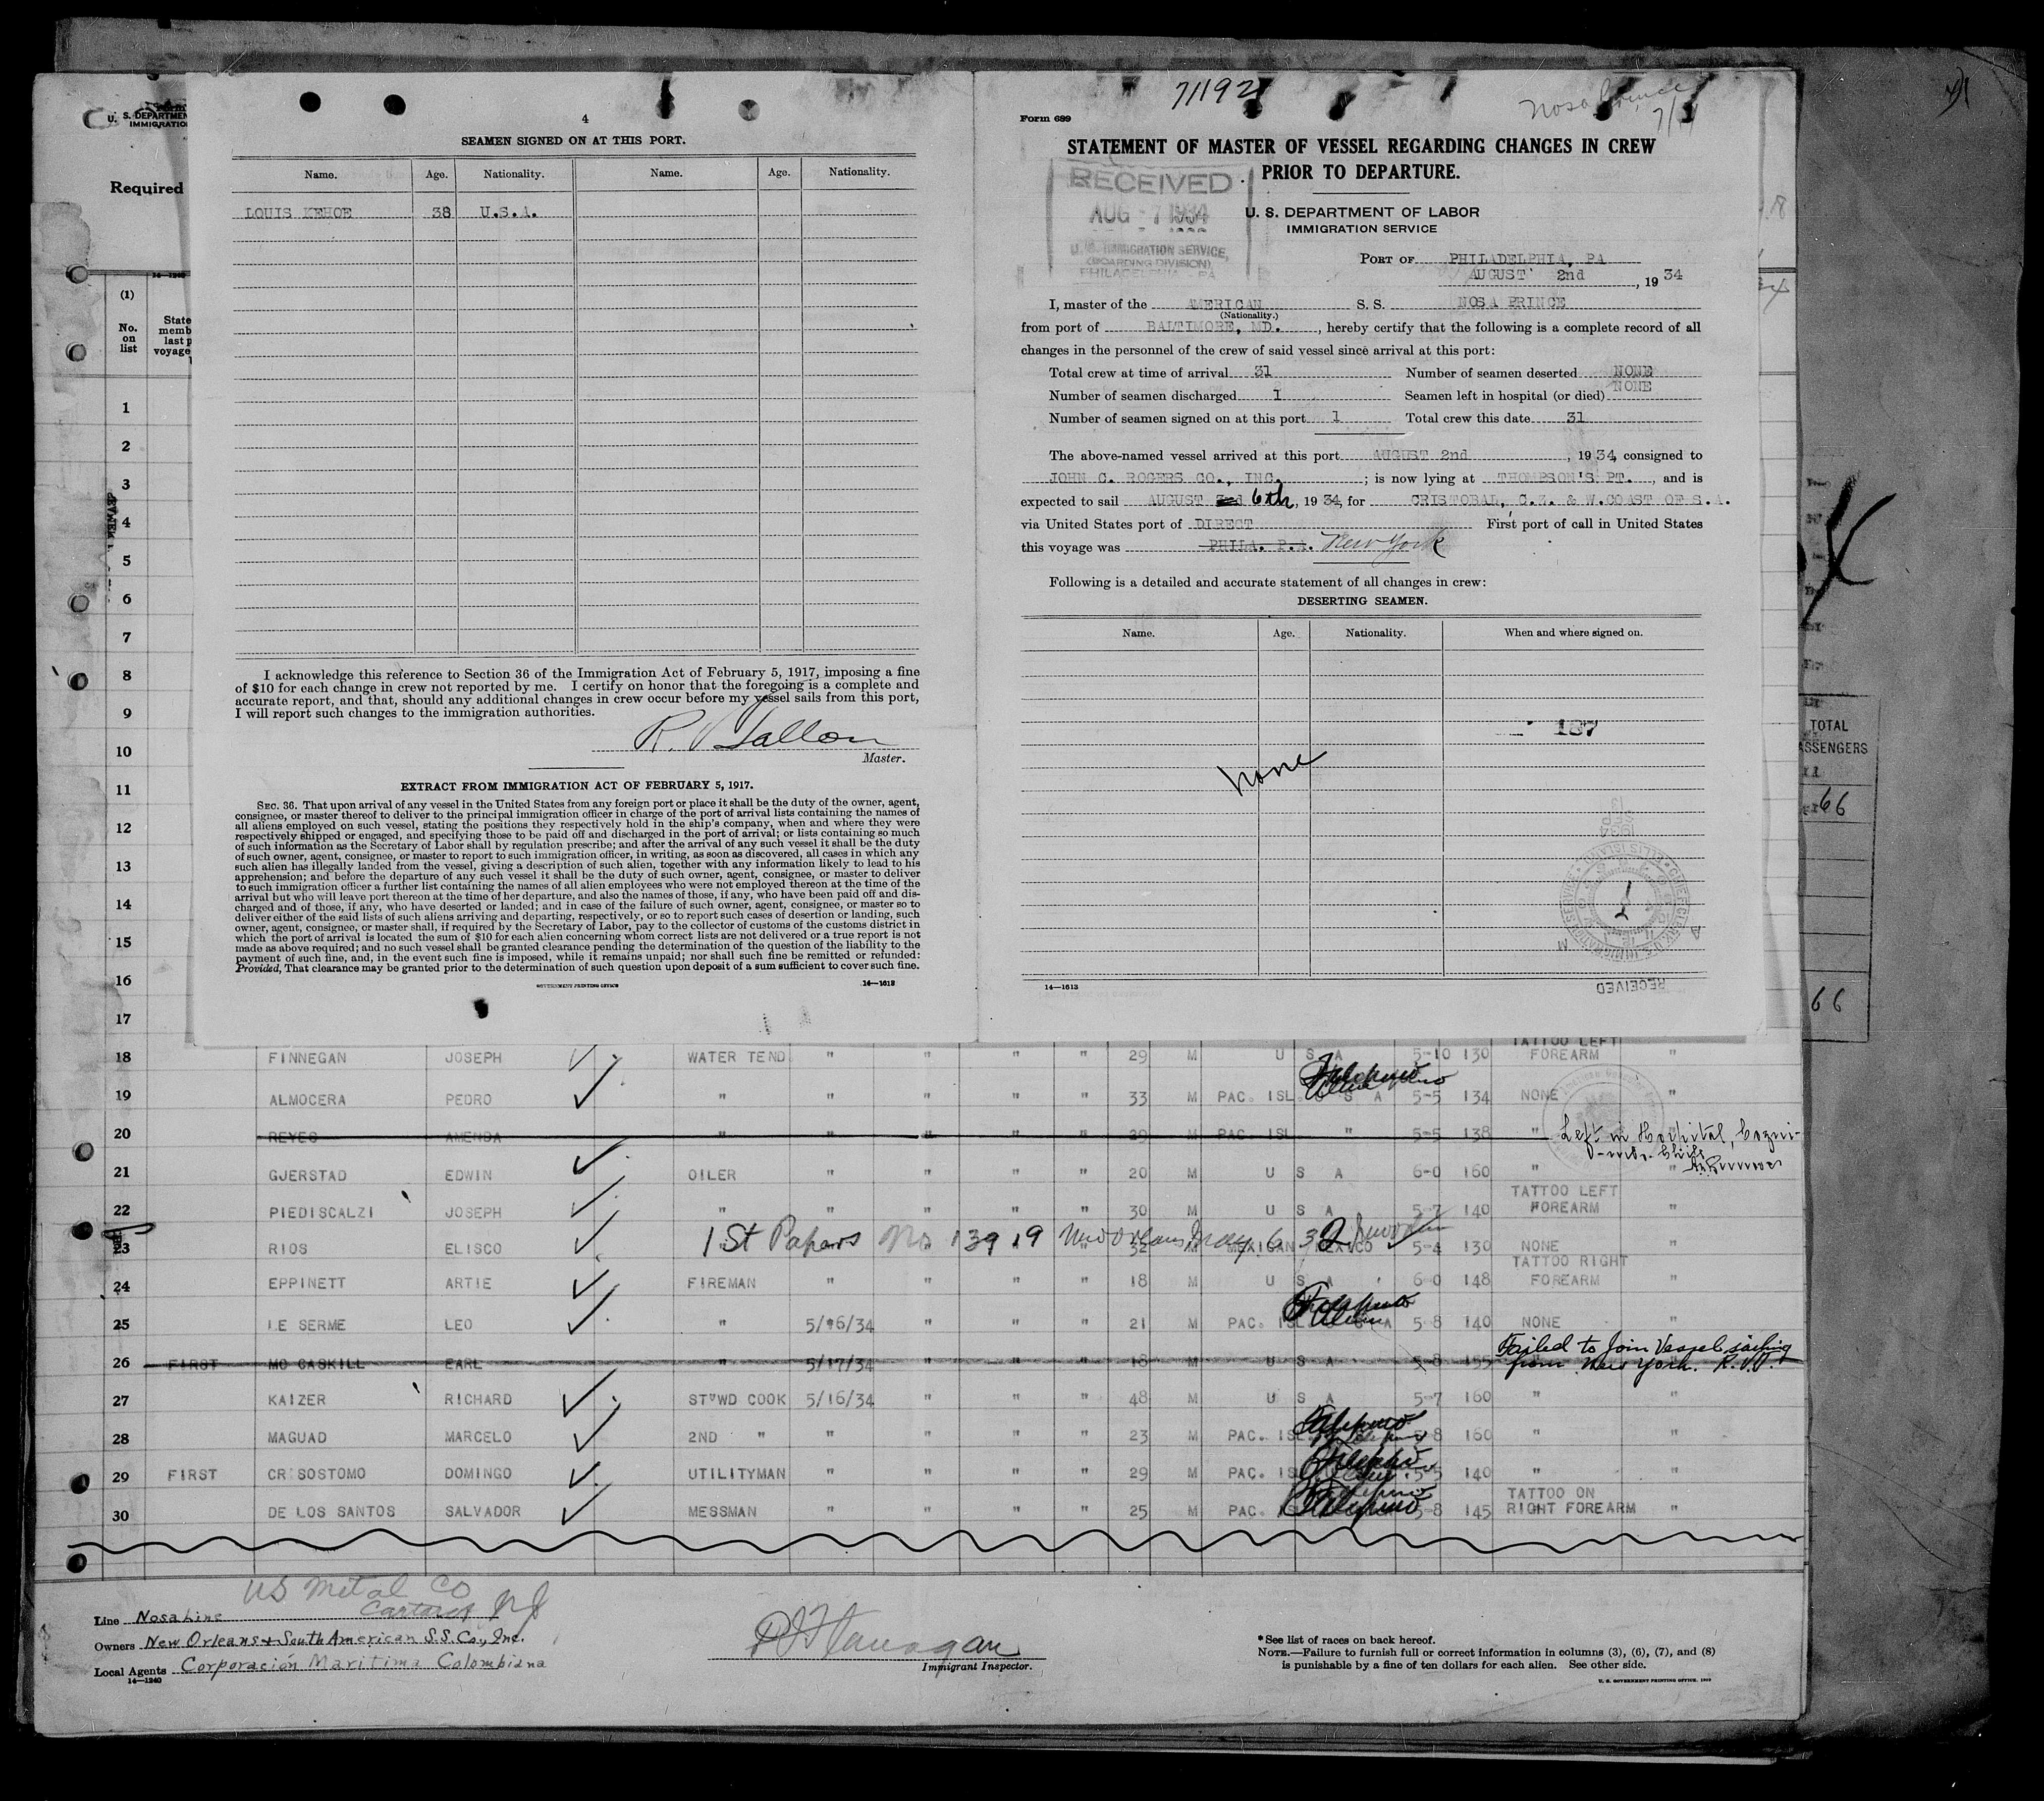 71192
Nosa Prince
7/11
4
SEAMEN SIGNED ON AT THIS PORT.
Name. Age. Nationality. Name. Age. Nationality.
LOUIS KEHOE 38 U.S.A.
I acknowledge this reference to Section 36 of the Immigration Act of February 5, 1917, imposing a fine
of $10 for each change in crew not reported by me. I certify on honor that the foregoing is a complete and
accurate report, and that, should any additional changes in crew occur before my vessel sails from this port,
I will report such changes to the immigration authorities.
Master.
EXTRACT FROM IMMIGRATION ACT OF FEBRUARY 5, 1917.
SEC. 36. That upon arrival of any vessel in the United States from any foreign port or place it shall be the duty of the owner, agent,
consignee, or master thereof to deliver to the principal immigration officer in charge of the port of arrival lists containing the names of
all aliens employed on such vessel, stating the positions they respectively hold in the ship's company, when and where they were
respectively shipped or engaged, and specifying those to be paid off and discharged in the port of arrival; or lists containing so much
of such information as the Secretary of Labor shall by regulation prescribe; and after the arrival of any such vessel it shall be the duty
of such owner, agent, consignee, or master to report to such immigration officer, in writing, as soon as discovered, all cases in which any
such alien has illegally landed from the vessel, giving a description of such alien, together with any information likely to lead to his
apprehension; and before the departure of any such vessel it shall be the duty of such owner, agent, consignee, or master to deliver
to such immigration officer a further list containing the names of all alien employees who were not employed thereon at the time of the
arrival but who will leave port thereon at the time of her departure, and also the names of those, if any, who have been paid off and dis-
charged and of those, if any, who have deserted or landed; and in case of the failure of such owner, agent, consignee, or master so to
deliver either of the said lists of such aliens arriving and departing, respectively, or so to report such cases of desertion or landing, such
owner, agent, consignee, or master shall, if required by the Secretary of Labor, pay to the collector of customs of the customs district in
which the port of arrival is located the sum of $10 for each alien concerning whom correct lists are not delivered or a true report is not
made as above required; and no such vessel shall be granted clearance pending the determination of the question of the liability to the
payment of such fine, and, in the event such fine is imposed, while it remains unpaid; nor shall such fine be remitted or refunded:
Provided, That clearance may be granted prior to the determination of such question upon deposit of a sum sufficient to cover such fine.
GOVERNMENT PRINTING OFFICE 14—1613
Form 689
STATEMENT OF MASTER OF VESSEL REGARDING CHANGES IN CREW
PRIOR TO DEPARTURE.
RECEIVED
AUG -7 1934
U. S. IMMIGRATION SERVICE,
(BOARDING DIVISION)
PHILADELPHIA, PA
U. S. DEPARTMENT OF LABOR
IMMIGRATION SERVICE
PORT OF PHILADELPHIA, PA
AUGUST 2nd, 1934
I, master of the AMERICAN S. S. NOSA PRINCE
(Nationality.)
from port of BALTIMORE, MD., hereby certify that the following is a complete record of all
changes in the personnel of the crew of said vessel since arrival at this port:
Total crew at time of arrival 31 Number of seamen deserted NONE
Number of seamen discharged 1 Seamen left in hospital (or died) NONE
Number of seamen signed on at this port 1 Total crew this date 31
The above-named vessel arrived at this port AUGUST 2nd, 1934, consigned to
JOHN C. ROGERS CO., INC.; is now lying at THOMPSON'S PT., and is
expected to sail AUGUST 6th, 1934, for CRISTOBAL, C.Z. & W.COAST OF S.A.
via United States port of DIRECT First port of call in United States
this voyage was PHILA. P.A. New York
Following is a detailed and accurate statement of all changes in crew:
DESERTING SEAMEN.
Name. Age. Nationality. When and where signed on.
187
none
RECEIVED
14—1613
U. S. DEPARTMEN
IMMIGRATIO
Required
14—1240
(1)
No. on list
State
memb
last p
voyage
1
2
3
4
5
6
7
8
9
10
11
12
13
14
15
16
17
TOTAL
ASSENGERS
66
66
18 FINNEGAN JOSEPH WATER TEND " " " " 29 M U S A 5-10 130 TATTOO LEFT FOREARM "
19 ALMOCERA PEDRO " " " " " 33 M PAC. ISL. U S A Filipino 5-5 134 NONE "
20 REYES AMENDA " " " " " 29 M PAC ISL " 5-5 138 " Left in Hospital,
21 GJERSTAD EDWIN OILER " " " " 20 M U S A 6-0 160 " "
22 PIEDISCALZI JOSEPH " " " " " 30 M U S A 5-7 140 TATTOO LEFT FOREARM "
23 RIOS ELISCO 1st Papers No 13919 New Orleans May 6 32 32 M MEXICAN MEXICO 5-4 130 NONE "
24 EPPINETT ARTIE FIREMAN " " " " 18 M U S A 6-0 148 TATTOO RIGHT FOREARM "
25 LE SERME LEO " 5/16/34 " " " 21 M PAC. ISL. U S A Filipino 5-8 140 NONE "
26 FIRST MC CASKILL EARL " 5/17/34 " " " 18 M U S A 5-8 155 Failed to Join Vessel sailing
from New York. R.V.T.
27 KAIZER RICHARD ST'WD COOK 5/16/34 " " " 48 M U S A 5-7 160 " "
28 MAGUAD MARCELO 2ND " " " " " 23 M PAC. ISL. Filipino 5-8 160 " "
29 FIRST CRISOSTOMO DOMINGO UTILITYMAN " " " " 29 M PAC. ISL Filipino 5-5 140 " "
30 DE LOS SANTOS SALVADOR MESSMAN " " " " 25 M PAC. Filipino 5-8 145 TATTOO ON RIGHT FOREARM "
US Metal Co
Carteret NJ
Line Nosa Line
Owners New Orleans & South American S.S. Co., Inc.
Local Agents Corporación Maritima Colombiana
14—1240
Flanagan
Immigrant Inspector.
* See list of races on back hereof.
NOTE.—Failure to furnish full or correct information in columns (3), (6), (7), and (8)
is punishable by a fine of ten dollars for each alien. See other side.
U. S. GOVERNMENT PRINTING OFFICE